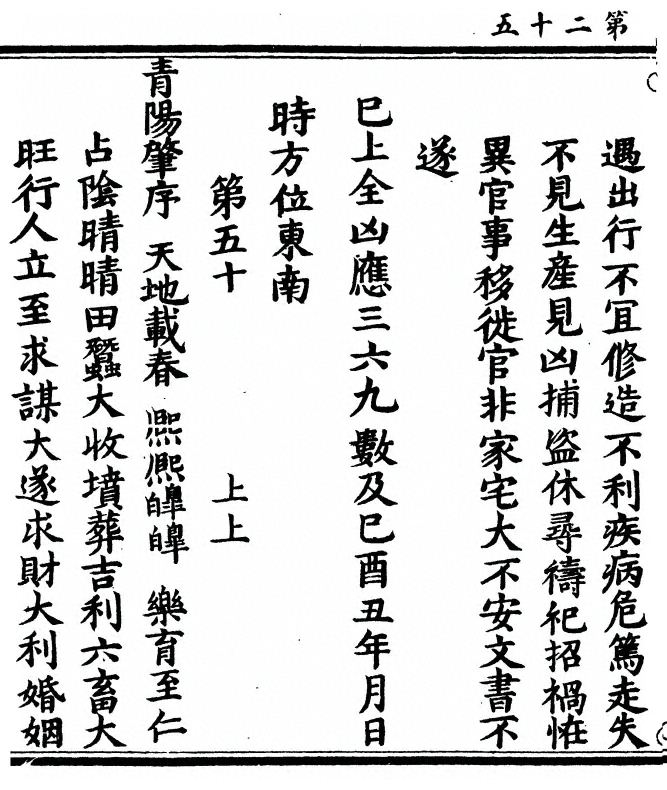 第二十五
遇出行不宜修造不利疾病危篤走失
不見生產見凶捕盜休尋禱祀招禍恠
異官事移徙官非家宅大不安文書不
遂
巳上全凶應三六九數及巳酉丑年月日
時方位東南
第五十 上上
青陽肇序 天地載春 熙熙皥皥 樂育至仁
占陰晴晴田蠶大收墳葬吉利六畜大
旺行人立至求謀大遂求財大利婚姻